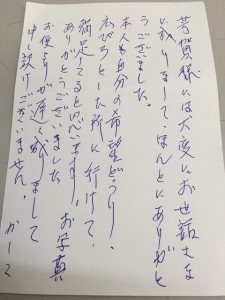 芳賀様には大変にお世話さま
になりまして、ほんとにありがと
うございました。
本人も自分の希望どうり、
広びろとした所に行けて、
満足してると思います。お写真
ありがとうございました
お便りが遅く成りまして
申し訳けございません。